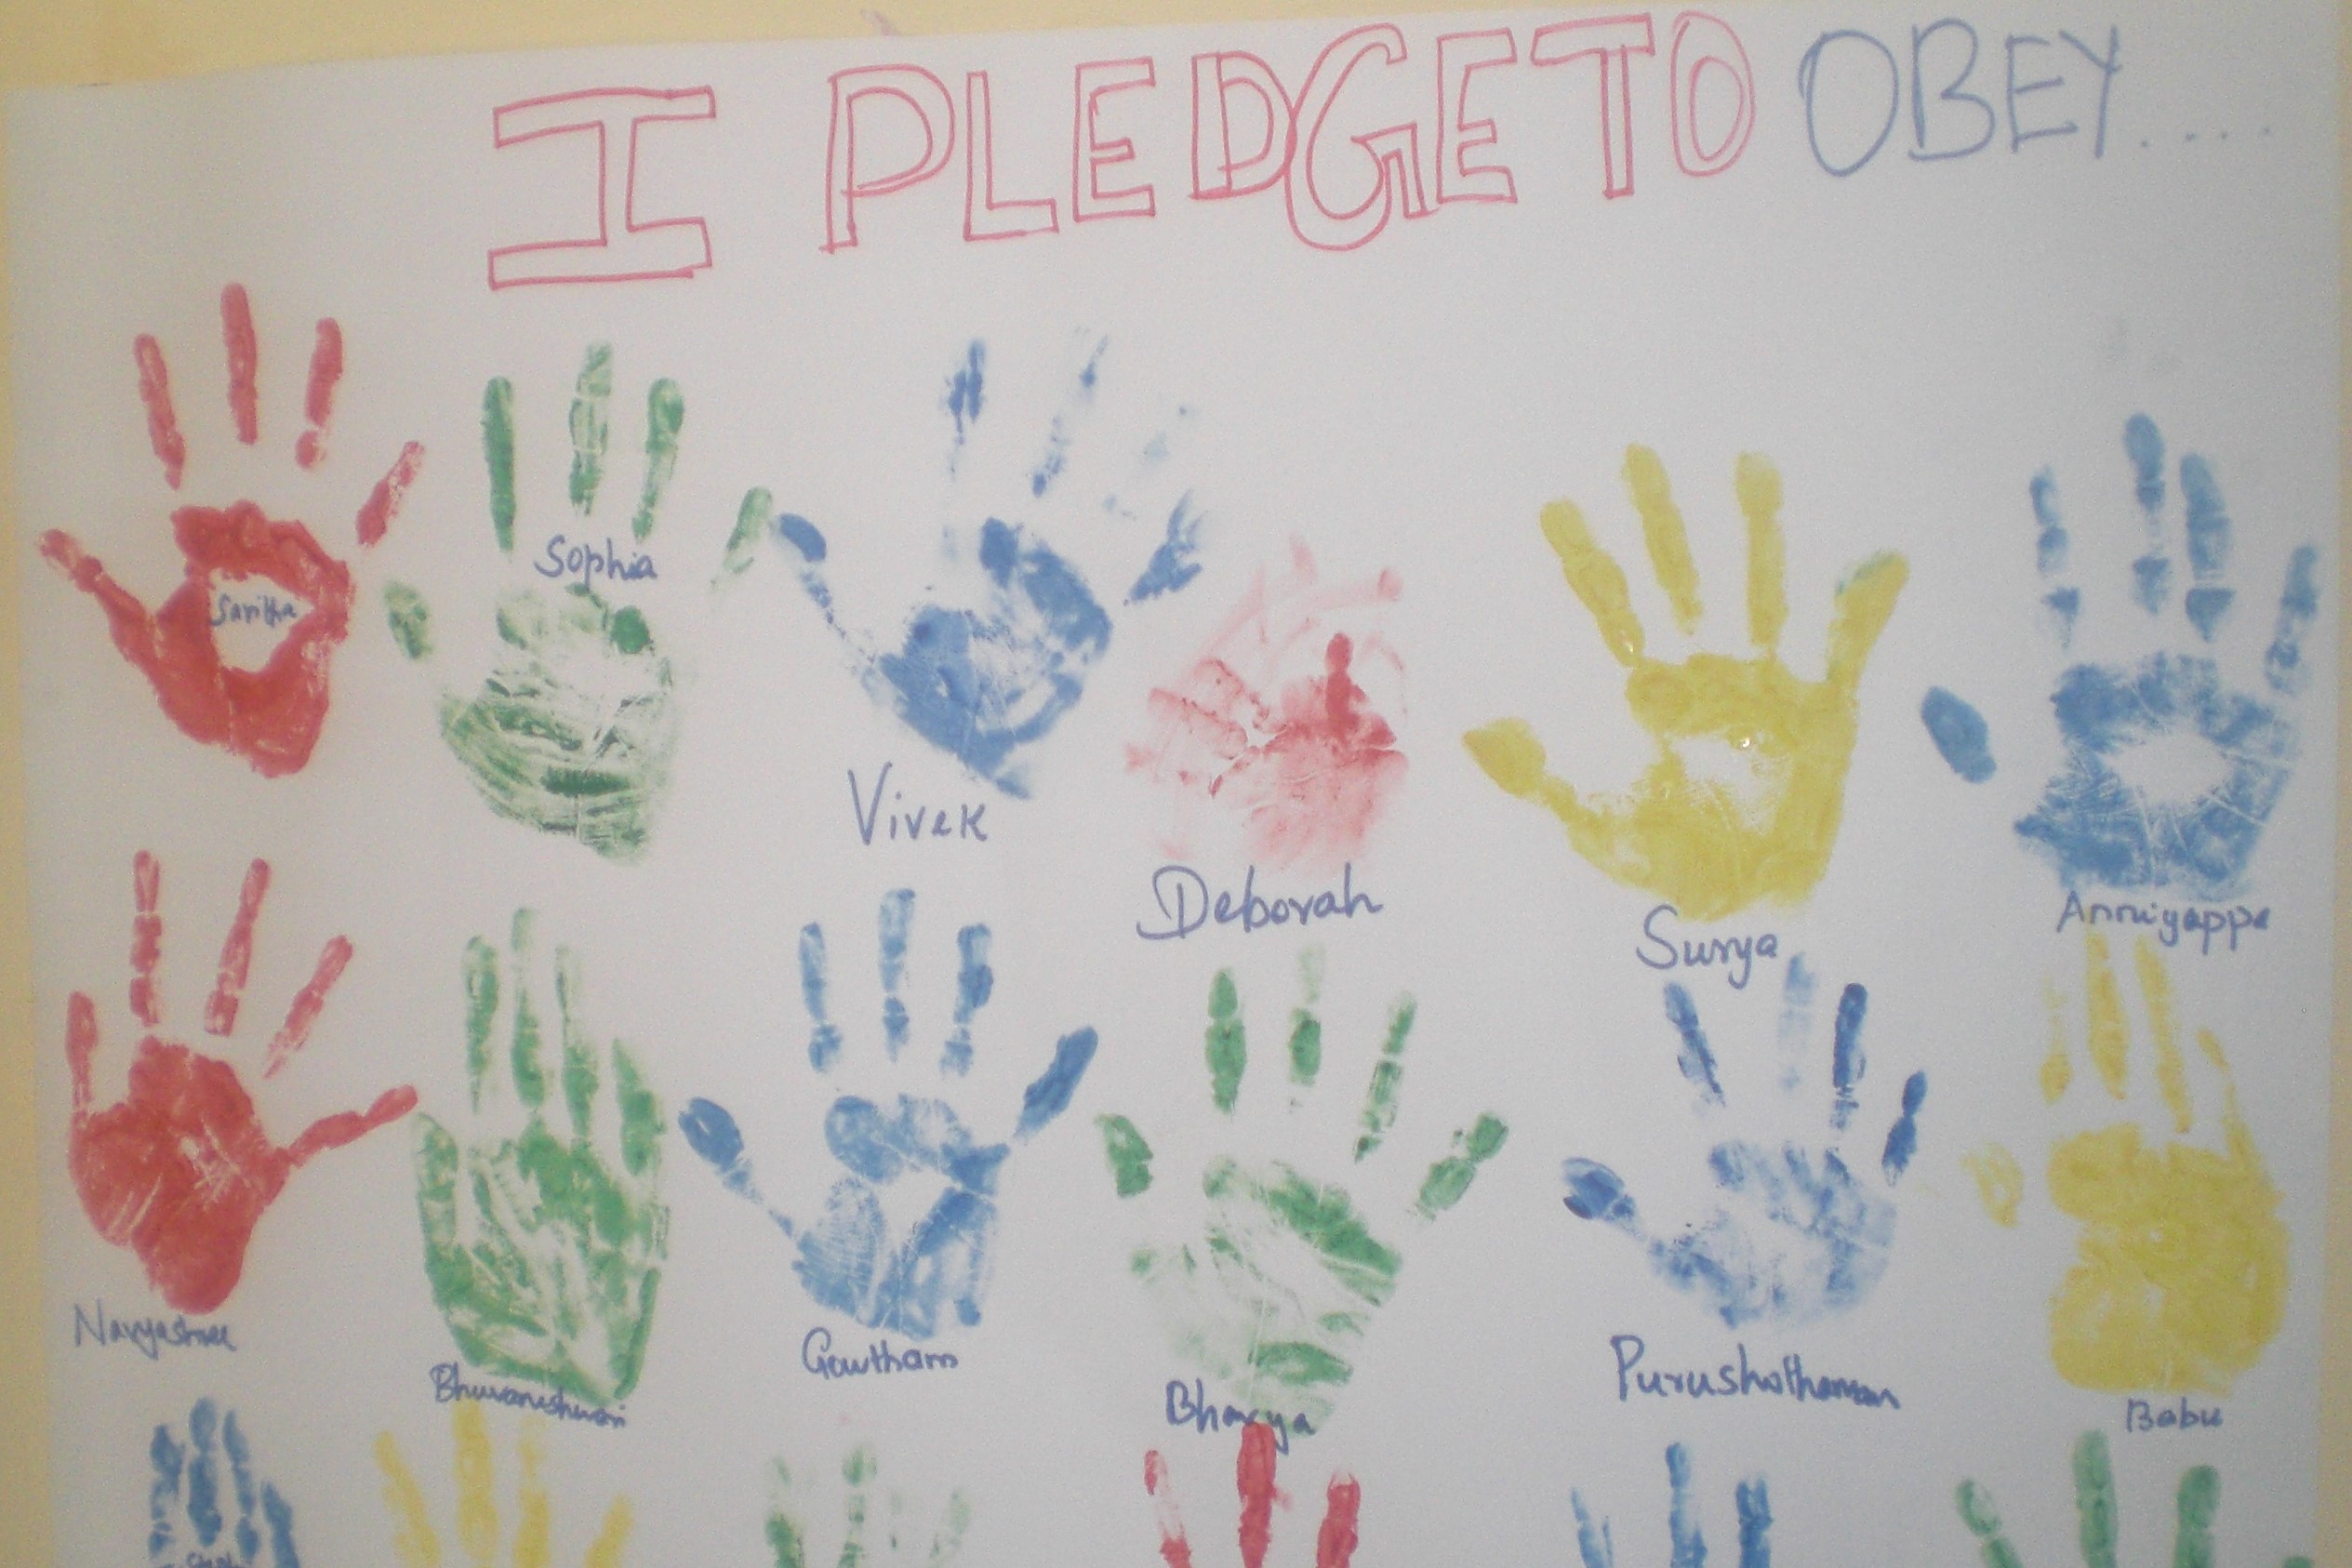 I PLEDGE TO OBEY.....
Saritha
Sophia
Vivek
Deborah
Surya
Anniyappa
Navyashree
Bhuvaneshwari
Gowtham
Bhavya
Purushothaman
Babu